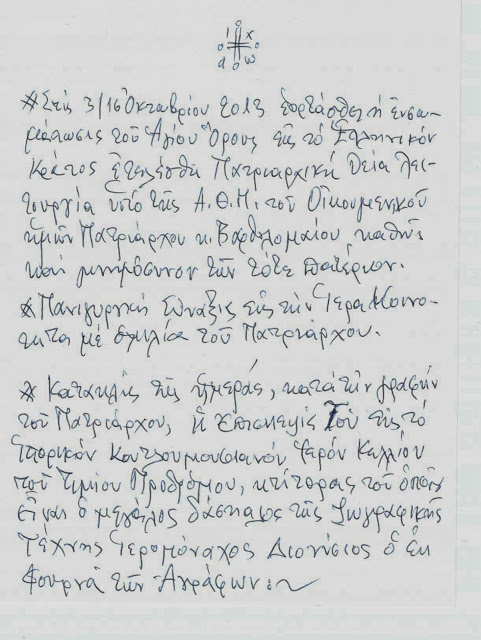 Ι Χ
α ω
* Στις 3/16 Ὀκτωβρίου 2013 ἑορτάσθει ἡ ἐνσω-
μάτωσις τοῦ Ἁγίου Ὄρους εἰς τὸ Ἑλληνικόν
Κράτος ἐτελέσθη Πατριαρχική Θεία Λει-
τουργία ὑπό τῆς Α.Θ.Π. τοῦ Οἰκουμενικοῦ
ἡμῶν Πατριάρχου κ. Βαρθολομαίου, καθώς
καί μνημόσυνον τῶν τότε πατέρων.
* Πανιγυρική Σύναξις εἰς τήν Ἱερα Κοινο-
τητα μέ ὁμιλία τοῦ Πατριάρχου.
* Κατακλείς τῆς ἡμέρας, κατά τήν γραφήν
τοῦ Πατριάρχου, ἡ ἐπίσκεψίς Του εἰς τό
Ἱστορικόν Κουτλουμουσιανόν Ἱερόν Κελλίον
τοῦ Τιμίου Προδρόμου, κτίτορας τοῦ ὁποίου
εἶναι ὁ μεγάλος δάσκαλος τῆς Ζωγραφικῆς
Τέχνης Ἱερομόναχος Διονύσιος ὁ ἐκ
Φουρνᾶ τῶν Ἀγράφων.